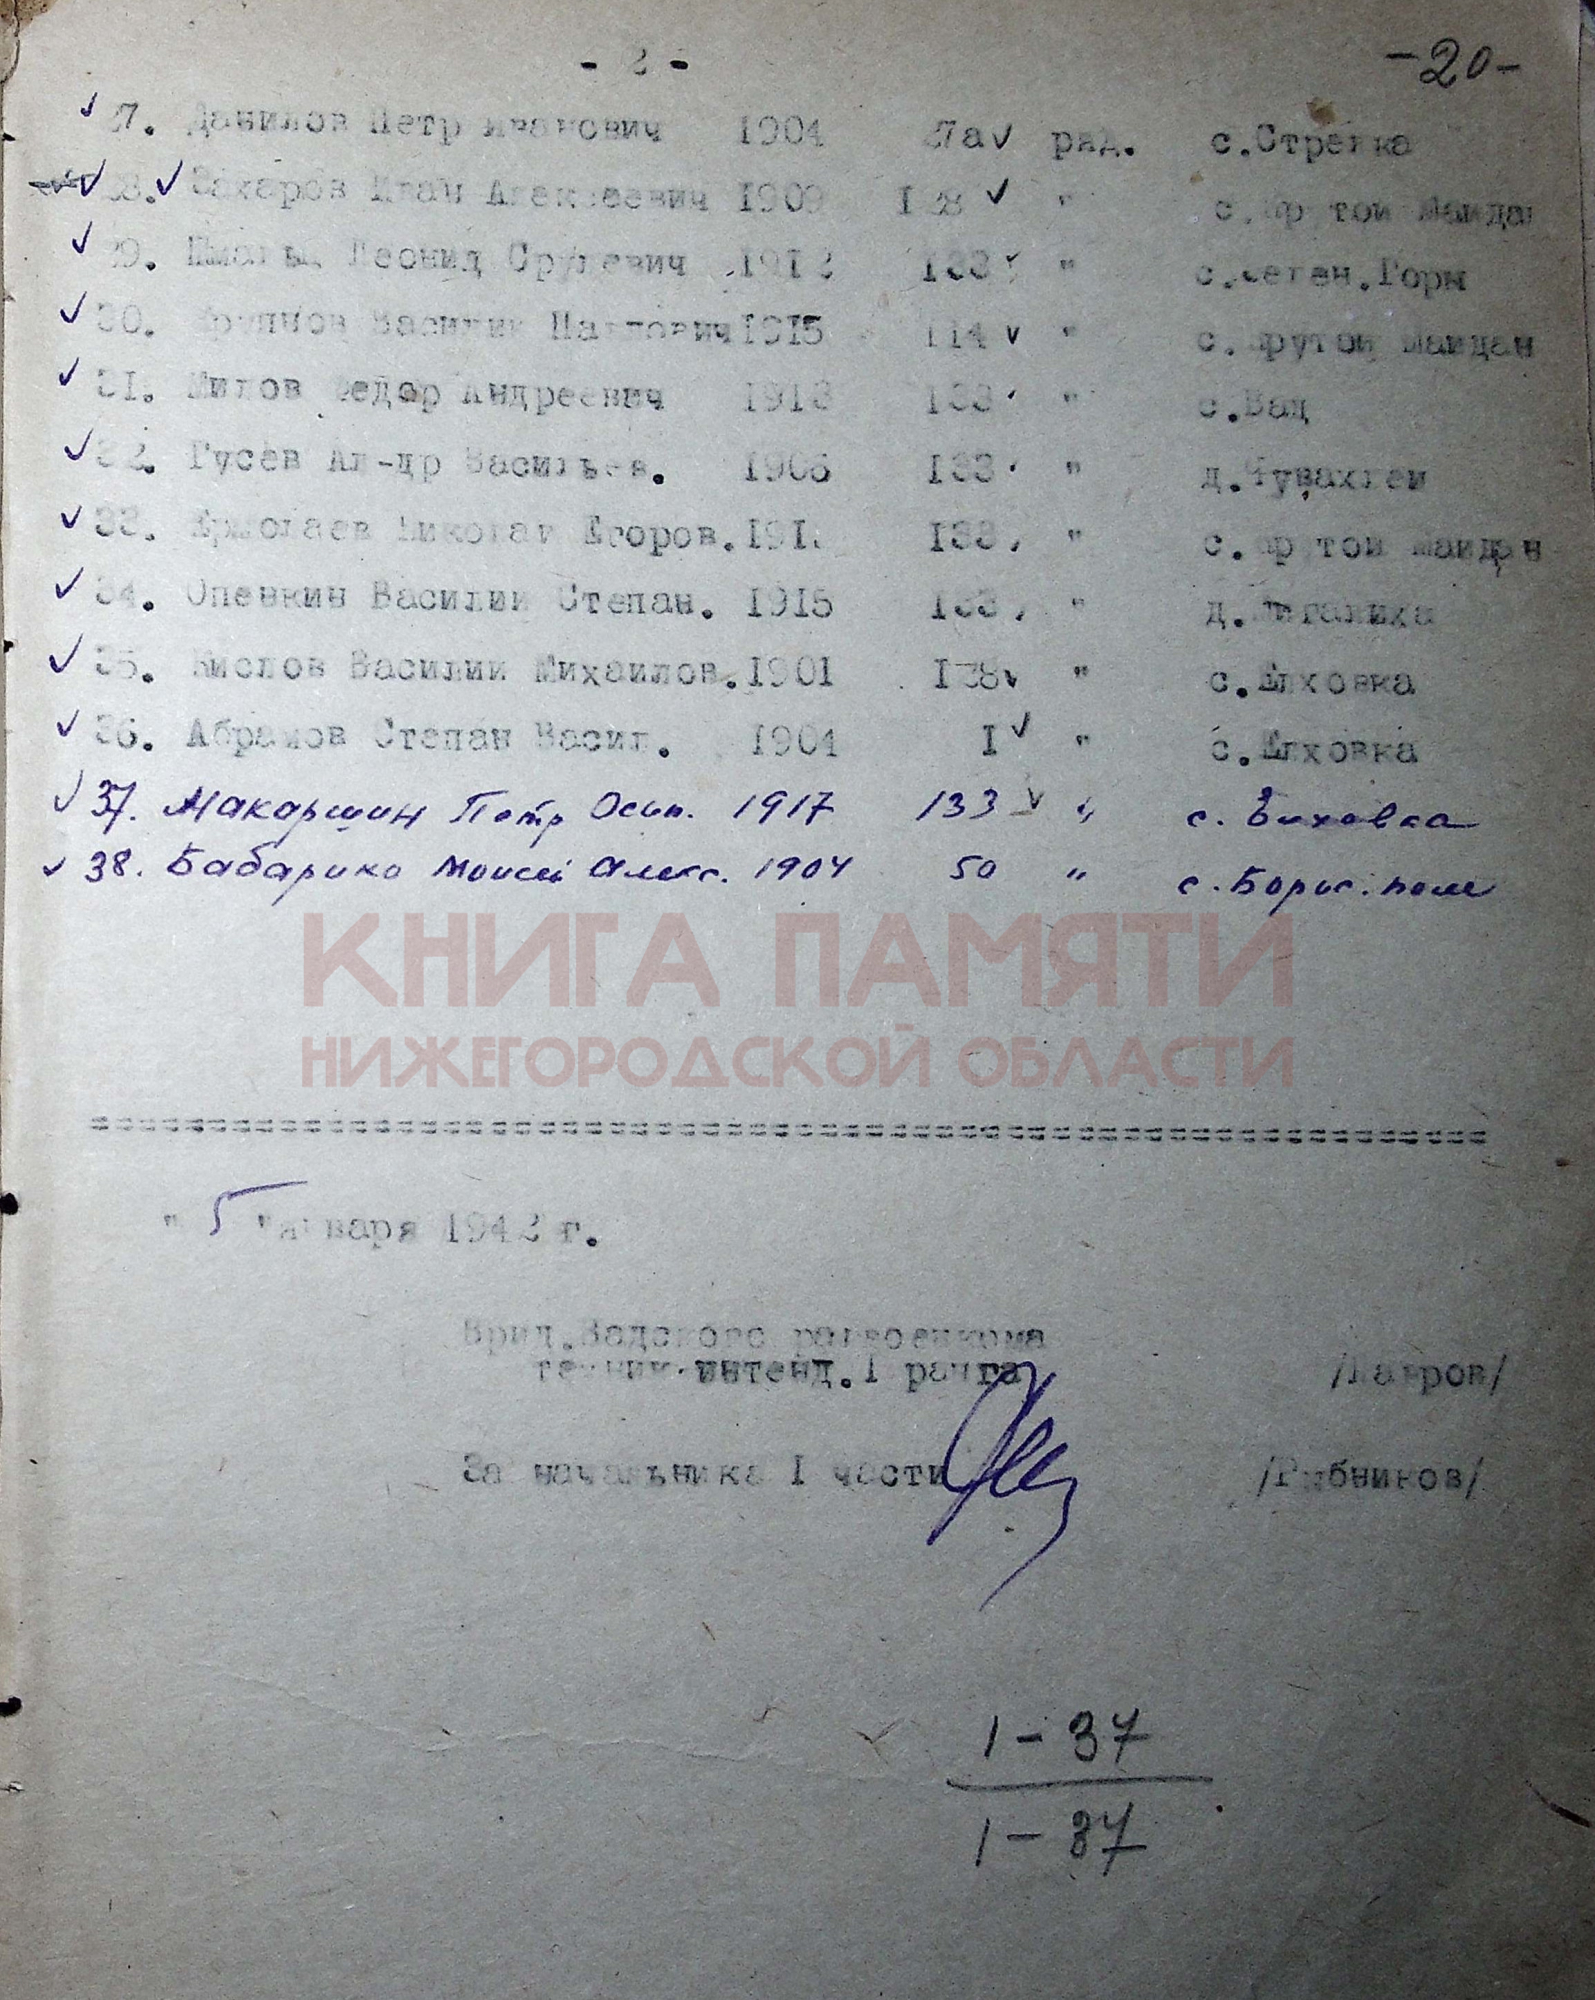 - 2 -
-20-
27. Данилов Петр Иванович 1904 27а ряд. с.Стрелка
28. Захаров Иван Алексеевич 1909 128 " с.Крутой Майдан
29. Леонид 1912 133 " с.Зелен.Горы
30. Крупнов Василий Павлович 1915 114 " с.Крутой Майдан
31. Федор Андреевич 1913 133 " с.Вад
32. Гусев Ал-др Васильев. 133 " д.
33. Ермолаев Николай Егоров. 133 " с.Крутой Майдан
34. Опенкин Василий Степан. 1915 133 " д.
35. Кислов Василий Михайлов. 1901 " с.Елховка
36. Абрамов Степан Васил. 1904 I " с.Елховка
37. Макаршин Петр Осип. 1917 133 " с.
38. Бабарико Моисей Алекс. 1904 50 " с. Борис. поле
КНИГА ПАМЯТИ
НИЖЕГОРОДСКОЙ ОБЛАСТИ
" 5 "января 1942 г.
Врид.Вадского райвоенкома
техник-интенд.1 ранга /Лавров/
За начальника I части /Рыбников/
1-37
1-37